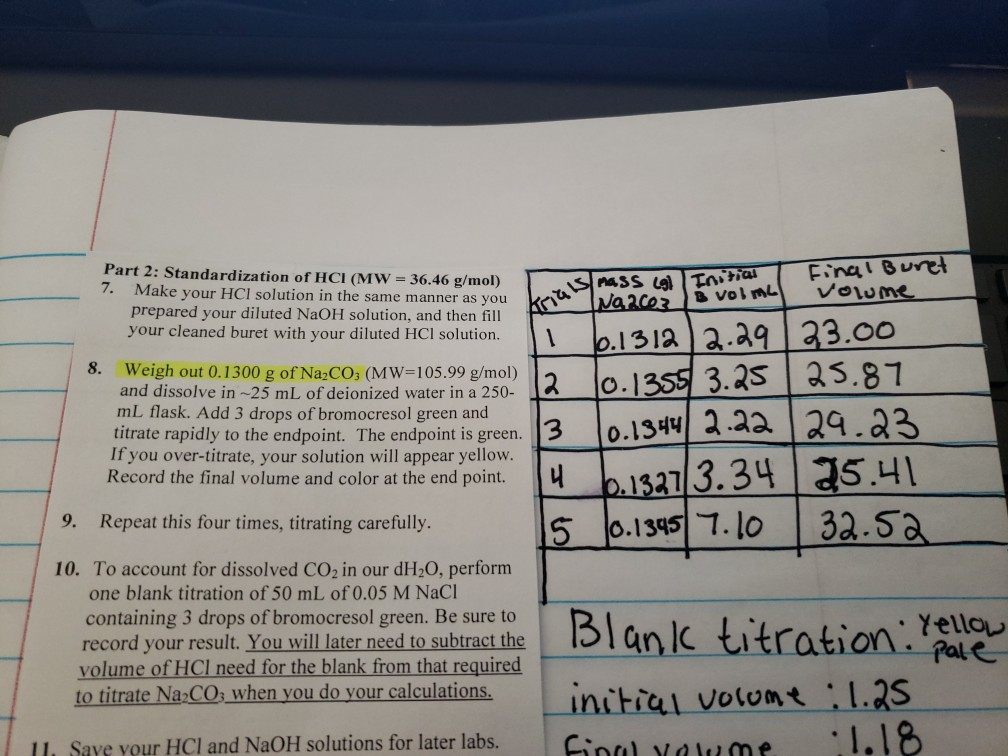 Part 2: Standardization of HCl (MW = 36.46 g/mol)
7. Make your HCl solution in the same manner as you
prepared your diluted NaOH solution, and then fill
your cleaned buret with your diluted HCl solution.
8. Weigh out 0.1300 g of Na₂CO₃ (MW=105.99 g/mol)
and dissolve in ~25 mL of deionized water in a 250-
mL flask. Add 3 drops of bromocresol green and
titrate rapidly to the endpoint. The endpoint is green.
If you over-titrate, your solution will appear yellow.
Record the final volume and color at the end point.
9. Repeat this four times, titrating carefully.
10. To account for dissolved CO₂ in our dH₂O, perform
one blank titration of 50 mL of 0.05 M NaCl
containing 3 drops of bromocresol green. Be sure to
record your result. You will later need to subtract the
volume of HCl need for the blank from that required
to titrate Na₂CO₃ when you do your calculations.
11. Save your HCl and NaOH solutions for later labs.
Trials Mass (g) Na2CO3 Initial B vol mL Final Buret Volume
1 0.1312 2.29 23.00
2 0.1355 3.25 25.87
3 0.1344 2.22 29.23
4 0.1327 3.34 25.41
5 0.1345 7.10 32.52
Blank titration: Yellow
Pale
initial volume : 1.25
Final volume : 1.18